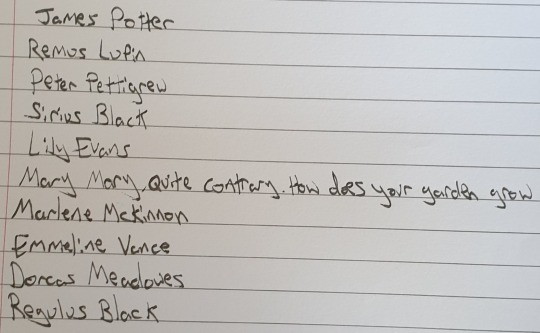 James Potter
Remus Lupin
Peter Pettigrew
Sirius Black
Lily Evans
Mary Mary, quite contrary. How does your garden grow
Marlene Mckinnon
Emmeline Vance
Dorcas Meadowes
Regulus Black